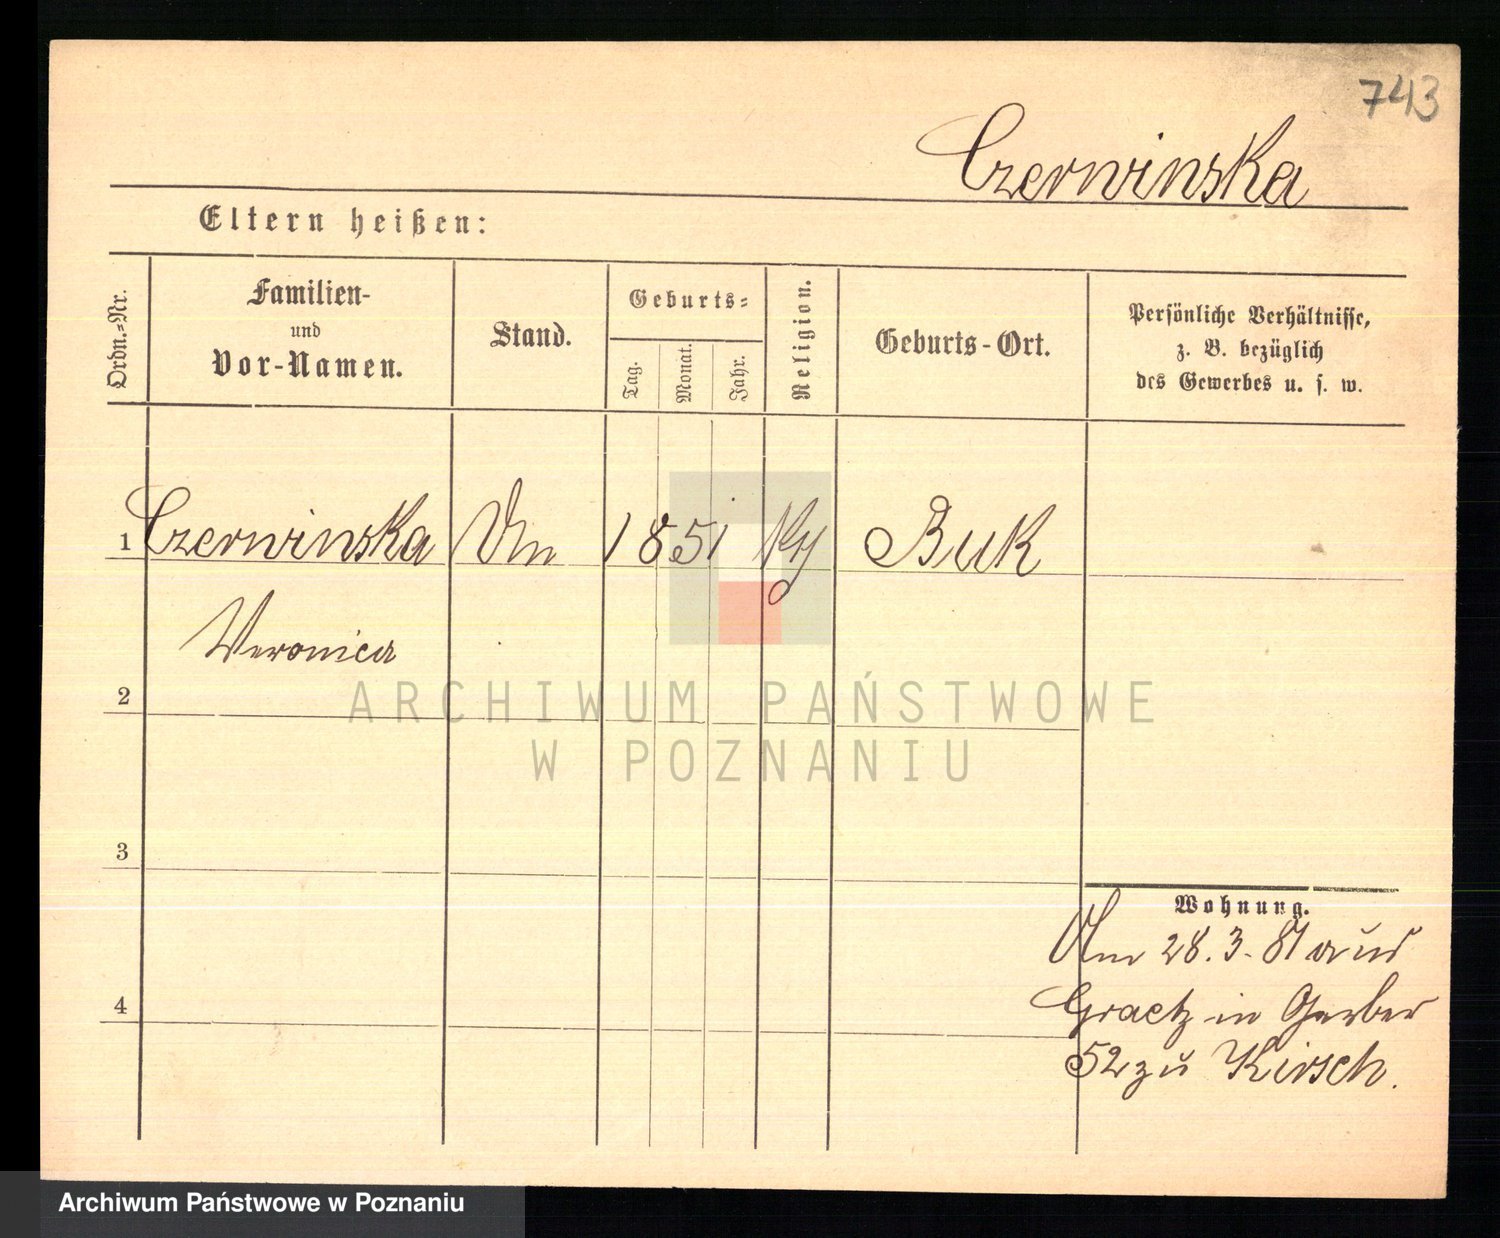 743
Czerwinska
Eltern heißen:
Ordn.-Nr.
Familien-
und
Vor-Namen.
Stand.
Geburts-
Tag.
Monat.
Jahr.
Religion.
Geburts-Ort.
Persönliche Verhältnisse,
z. B. bezüglich
des Gewerbes u. s. w.
1 Czerwinska 1851 Buk
Veronica
2
3
4
Wohnung.
Am 28.3.81 aus
Graetz in Gerber
52 zu Kirsch.
ARCHIWUM PAŃSTWOWE
W POZNANIU
Archiwum Państwowe w Poznaniu